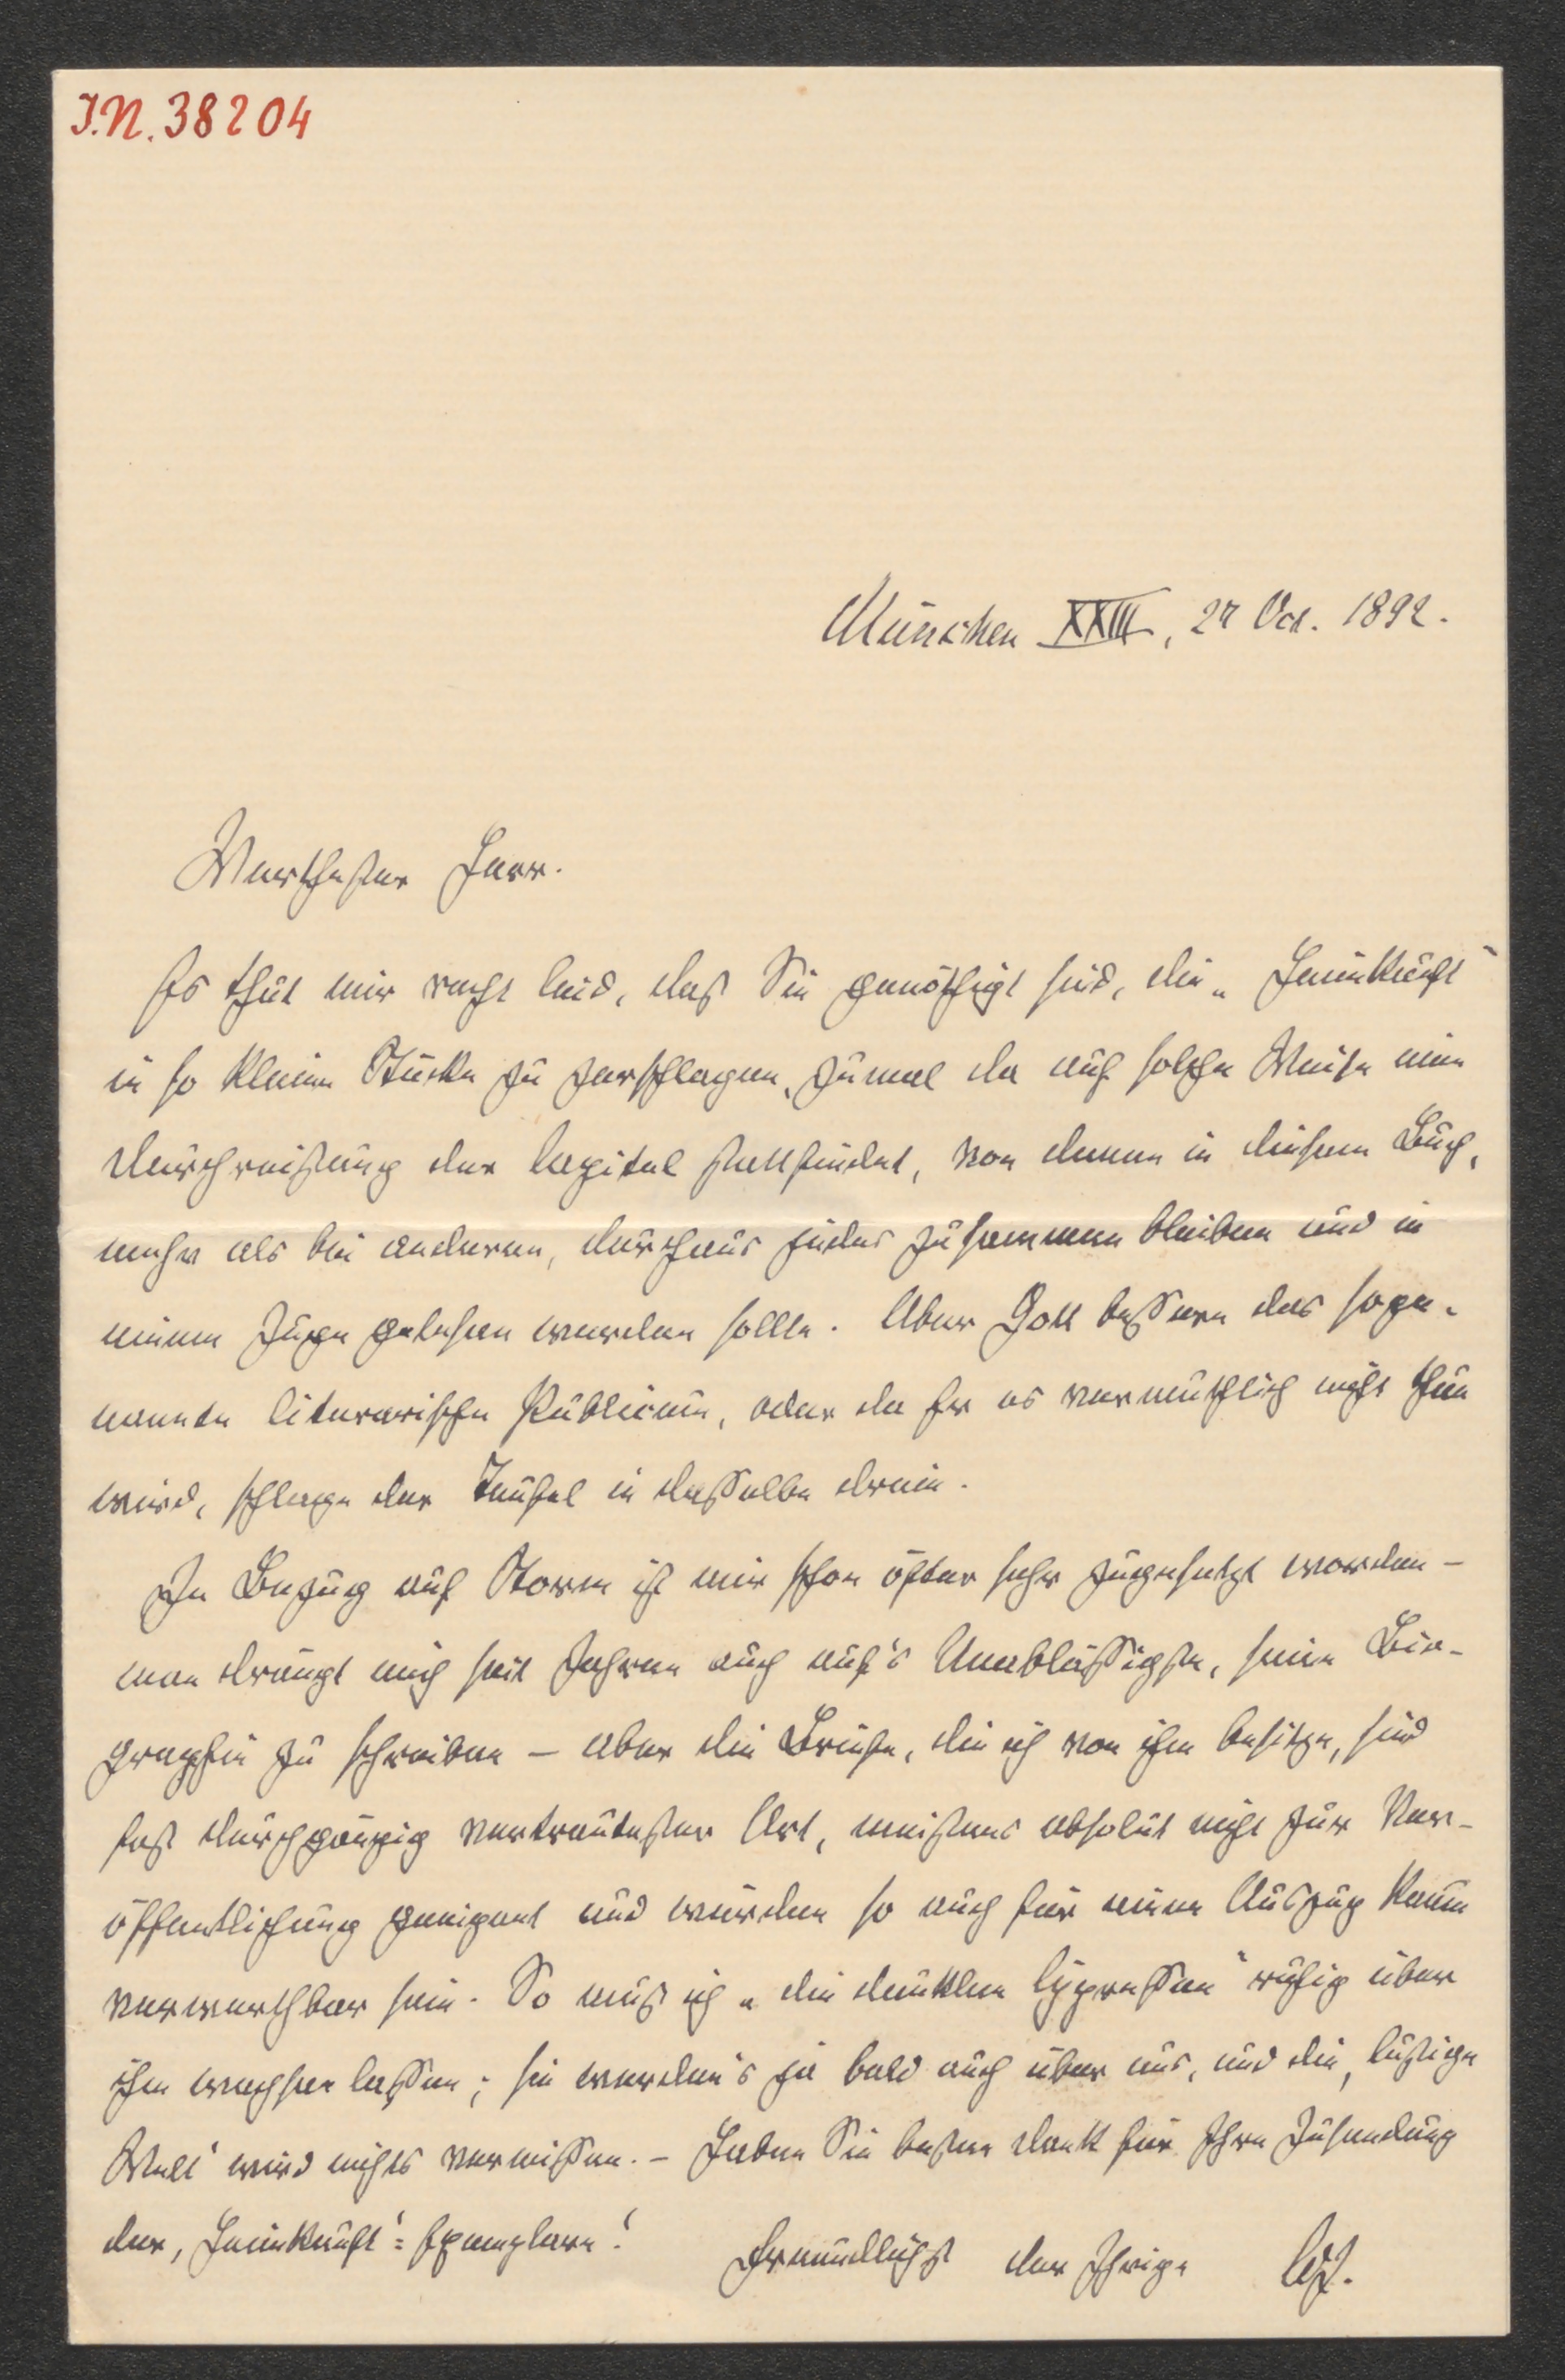 I.N. 38204
München XXIII, 27 Oct. 1892.
Werthester Herr.
Es thut mir recht leid, daß Sie genöthigt sind, die „Heimkunft“
in so kleine Stücke zu zerschlagen, zumal da auf solche Weise eine
Durchreißung der Capitel stattfindet, von denen in diesem Buch,
mehr als bei anderen, durchaus jedes zusammen bleiben und in
einem Zuge gelesen werden sollte. Aber Gott bessere das soge-
nannte literarische Publicum, oder da Er es vermuthlich nicht thun
wird, schlage der Teufel in dasselbe drein.
In Bezug auf Storm ist mir schon öfter sehr zugesetzt worden –
man drängt mich seit Jahren auch auf's Unablässigste, seine Bio-
graphie zu schreiben – aber die Briefe, die ich von ihm besitze, sind
fast durchgängig vertrautester Art, meistens absolut nicht zur Ver-
öffentlichung geeignet und würden so auch für einen Auszug kaum
verwerthbar sein. So muß ich „die dunklen Cypressen“ ruhig über
ihm wachsen lassen; sie werden's ja bald auch über uns, und die ‚lustige
Welt‘ wird nichts vermissen. – Haben Sie besten Dank für Ihre Zusendung
der ‚Heimkunft‘-Exemplare!
Freundlichst der Ihrige